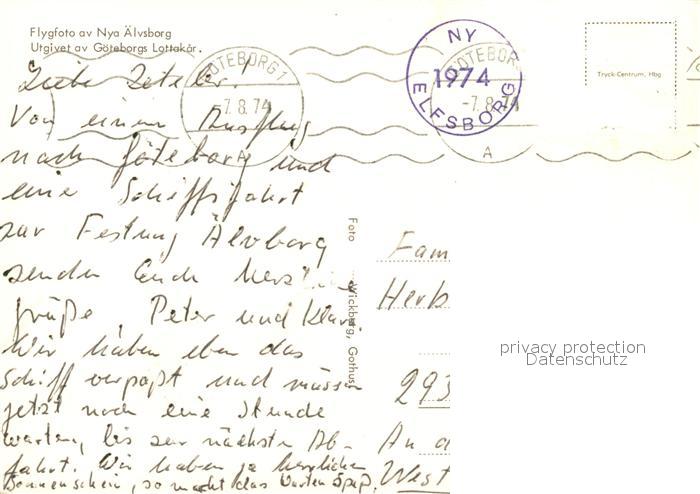 Flygfoto av Nya Älvsborg
Utgivet av Göteborgs Lottakår.
GÖTEBORG 1
-7.8.74
A
NY
1974
ELFSBORG
GÖTEBORG
-7.8.74
A
Tryck-Centrum, Hbg
Von einem Ausflug
nach Göteborg und
eine Schiffsfahrt
zur Festung Älvborg
senden Euch herzliche
Grüße, Peter und
Wir haben eben das
Schiff verpaßt und müssen
jetzt noch eine Stunde
warten, bis zur nächsten Ab-
fahrt. Wir haben ja herrlichen
Sonnenschein, so macht das Warten Spaß.
Foto Wickberg, Gothus
Fam
Herb
293
An d
West
privacy protection
Datenschutz